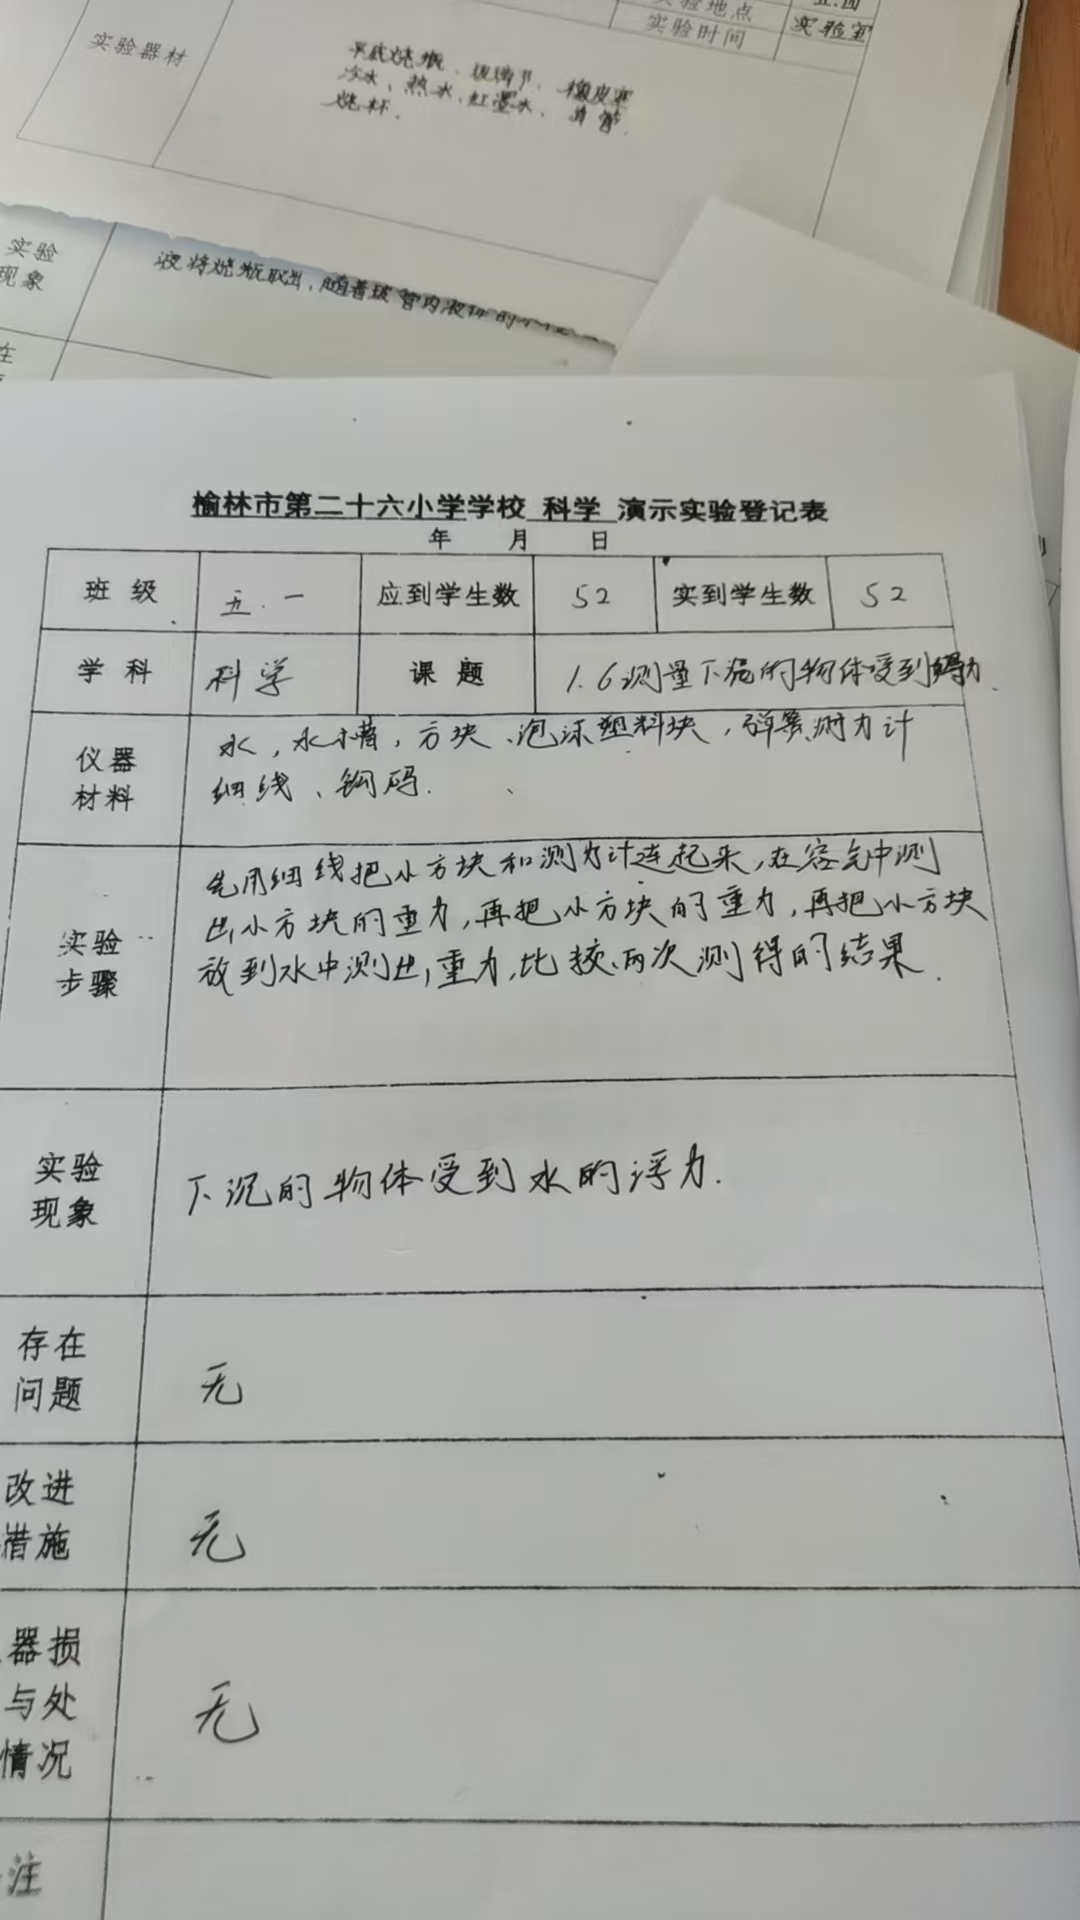 实验地点
五.四
实验时间
实验室
实验器材
平底烧瓶、玻璃片、橡皮塞
冷水、热水、红墨水、
烧杯.
实验
现象
液将烧瓶取出,随着玻管内液柱的
在
榆林市第二十六小学学校 科学 演示实验登记表
年 月 日
班级 五.一 应到学生数 52 实到学生数 52
学科 科学 课题 1.6测量下沉的物体受到的浮力.
仪器
材料
水,水槽,方块、泡沫塑料块,弹簧测力计
细线、钩码.
实验
步骤
先用细线把小方块和测力计连起来,在空气中测
出小方块的重力,再把小方块的重力,再把小方块
放到水中测出重力,比较两次测得的结果.
实验
现象
下沉的物体受到水的浮力.
存在
问题
无
改进
措施
无
器损
与处
情况
无
注